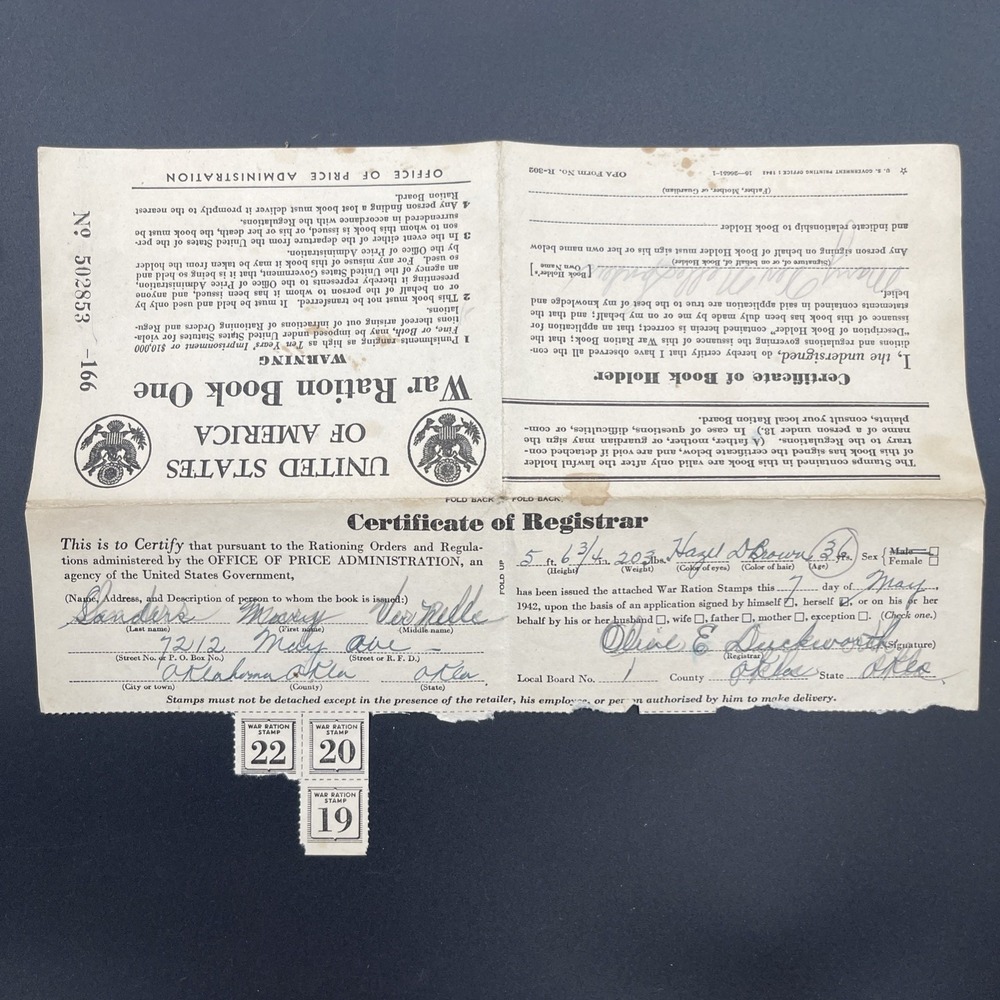 UNITED STATES
OF AMERICA
War Ration Book One
WARNING
1 Punishments ranging as high as Ten Years' Imprisonment or $10,000
Fine, or Both, may be imposed under United States Statutes for viola-
tions thereof arising out of infractions of Rationing Orders and Regu-
lations.
2 This book must not be transferred. It must be held and used only by
or on behalf of the person to whom it has been issued, and anyone
presenting it thereby represents to the Office of Price Administration,
an agency of the United States Government, that it is being so held and
so used. For any misuse of this book it may be taken from the holder
by the Office of Price Administration.
3 In the event either of the departure from the United States of the per-
son to whom this book is issued, or his or her death, the book must be
surrendered in accordance with the Regulations.
4 Any person finding a lost book must deliver it promptly to the nearest
Ration Board.
OFFICE OF PRICE ADMINISTRATION
Nº 502853 -166
The Stamps contained in this Book are valid only after the lawful holder
of this Book has signed the certificate below, and are void if detached con-
trary to the Regulations. (A father, mother, or guardian may sign the
name of a person under 18.) In case of questions, difficulties, or com-
plaints, consult your local Ration Board.
Certificate of Book Holder
I, the undersigned, do hereby certify that I have observed all the con-
ditions and regulations governing the issuance of this War Ration Book; that the
"Description of Book Holder" contained herein is correct; that an application for
issuance of this book has been duly made by me or on my behalf; and that the
statements contained in said application are true to the best of my knowledge and
belief.
[Book Holder's Own Name]
(Signature of, or on behalf of, Book Holder)
Any person signing on behalf of Book Holder must sign his or her own name below
and indicate relationship to Book Holder
(Father, Mother, or Guardian)
OPA Form No. R-302
☆ U. S. GOVERNMENT PRINTING OFFICE : 1942 16-26651-1
FOLD BACK FOLD BACK
Certificate of Registrar
This is to Certify that pursuant to the Rationing Orders and Regula-
tions administered by the OFFICE OF PRICE ADMINISTRATION, an
agency of the United States Government,
(Name, Address, and Description of person to whom the book is issued:)
Sanders Mary Ver Nelle
(Last name) (First name) (Middle name)
7212 May ave
(Street No. or P. O. Box No.) (Street or R. F. D.)
Oklahoma Okla Okla
(City or town) (County) (State)
FOLD UP
5 ft. 6 3/4 in. 203 lbs. Hazel D Brown 36 yrs. Sex { Male Female
(Height) (Weight) (Color of eyes) (Color of hair) (Age)
has been issued the attached War Ration Stamps this 7 day of May,
1942, upon the basis of an application signed by himself, herself, or on his or her
behalf by his or her husband, wife, father, mother, exception. (Check one.)
Olive E Duckworth (Signature)
(Registrar)
Local Board No. 1 County Okla State Okla
Stamps must not be detached except in the presence of the retailer, his employee, or person authorized by him to make delivery.
WAR RATION STAMP 22
WAR RATION STAMP 20
WAR RATION STAMP 19